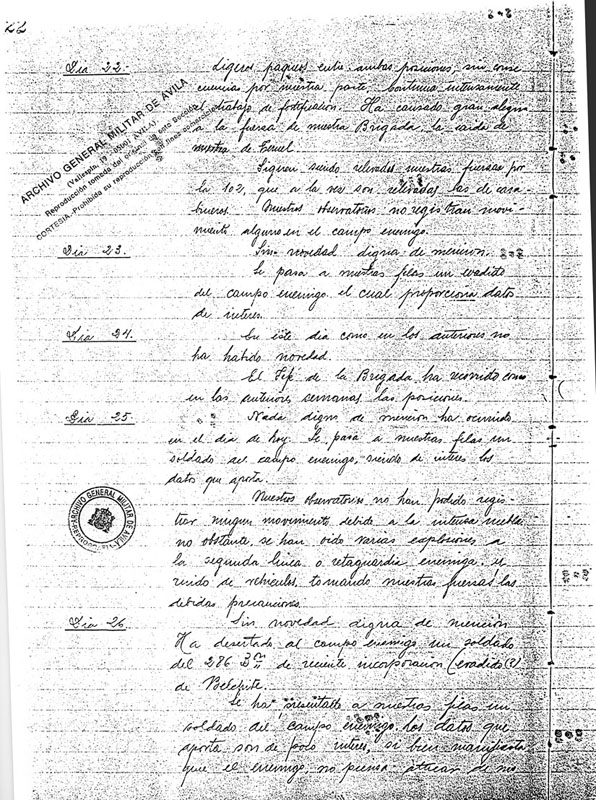 22
Dia 22.-
Ligeros paqueos entre ambas posiciones, sin conse
cuencias por nuestra parte, continua intensamente
el trabajo de fortificacion. Ha causado gran alegria
a la fuerza de nuestra Brigada, la caida de
nuestra de Teruel.
Siguen siendo relevadas nuestras fuerzas por
la 102, que a la vez son relevadas las de cara-
bineros. Nuestros observatorios no registran movi-
miento alguno en el campo enemigo.
Dia 23.
Sin novedad digna de mencion.
Se pasa a nuestras filas un evadido
del campo enemigo el cual proporciona datos
de interes.
Dia 24.
En este dia como en los anteriores no
ha habido novedad.
El Jefe de la Brigada ha recorrido como
en las anteriores semanas las posiciones.
Dia 25
Nada digno de mencion ha ocurrido
en el dia de hoy. Se pasa a nuestras filas un
soldado del campo enemigo, siendo de interes los
datos que aporta.
Nuestros observatorios no han podido regis-
trar ningun movimiento debido a la intensa niebla
no obstante, se han oido varias explosiones a
la segunda linea o retaguardia enemiga, y
ruido de vehiculos, tomando nuestras fuerzas las
debidas precauciones.
Dia 26
Sin novedad digna de mención
Ha desertado al campo enemigo un soldado
del 286 Bon de reciente incorporacion (evadido (?)
de Belchite.
Se ha presentado a nuestras filas un
soldado del campo enemigo. Los datos que
aporta son de poco interes, si bien manifiesta
que el enemigo, no piensa atacar de
ARCHIVO GENERAL MILITAR DE AVILA
(Vallespin, 19 - 05001 AVILA)
Reproducción tomada del original de este Docum
CORTESIA.-Prohibida su reproducción con fines comerci
ARCHIVO GENERAL MILITAR DE AVILA